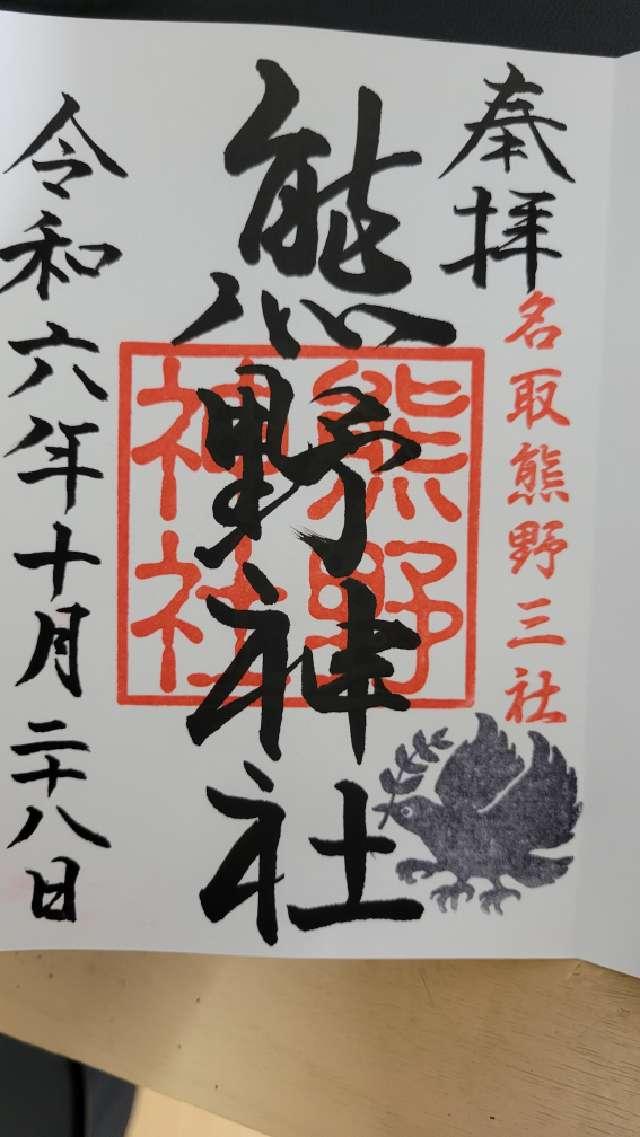 奉拝
名取熊野三社
熊野神社
熊野
神社
令和六年十月二十八日